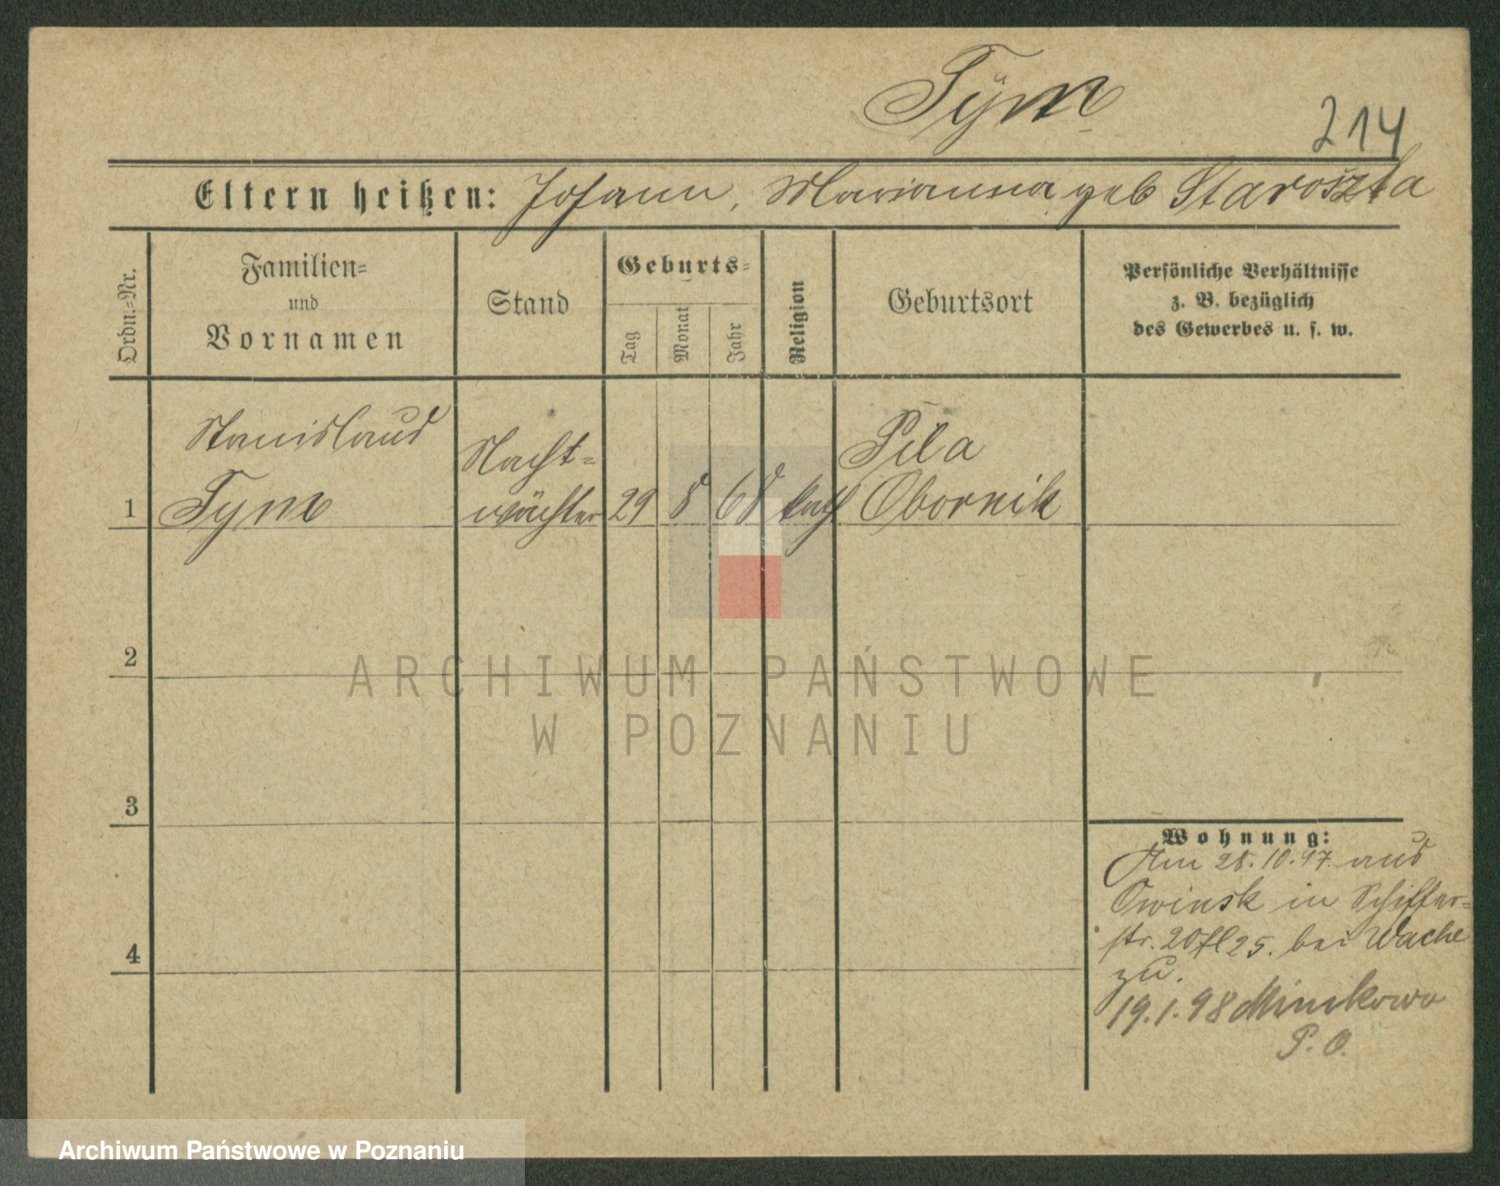 Tÿm
214
Eltern heißen: Johann, Marianna geb Staroszta
Ordn.-Nr.
Familien-
und
Vornamen
Stand
Geburts-
Tag
Monat
Jahr
Religion
Geburtsort
Persönliche Verhältnisse
z. B. bezüglich
des Gewerbes u. s. w.
1
Stanislaus
Tym
Nacht-
wächter
29
8
68
kath
Pila
Obornik
2
ARCHIWUM PAŃSTWOWE
W POZNANIU
3
Wohnung:
Am 28.10.97 aus
Owinsk in Schiffer-
str. 20 fl 25. bei Wache
zu.
4
19.1.98 Minikowo
P. O.
Archiwum Państwowe w Poznaniu